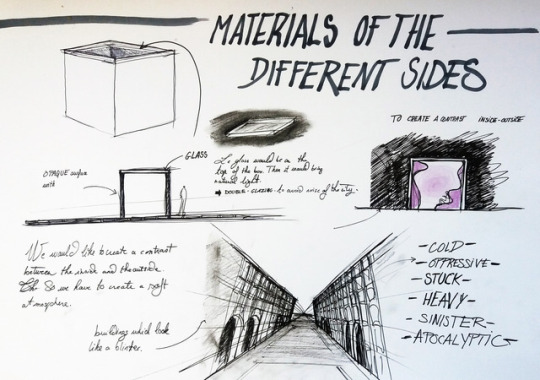 MATERIALS OF THE
DIFFERENT SIDES
TO CREATE A CONTRAST INSIDE-OUTSIDE
GLASS
glass would be on the
top of the box. Then it would bring
natural light.
DOUBLE-GLAZING to avoid noise of the city.
OPAQUE surface
We would like to create a contrast
between the inside and the outside.
So we have to create a soft
atmosphere.
buildings which look
like a blinker.
-COLD-
-OPPRESSIVE-
-STUCK-
-HEAVY-
-SINISTER-
-APOCALYPTIC-